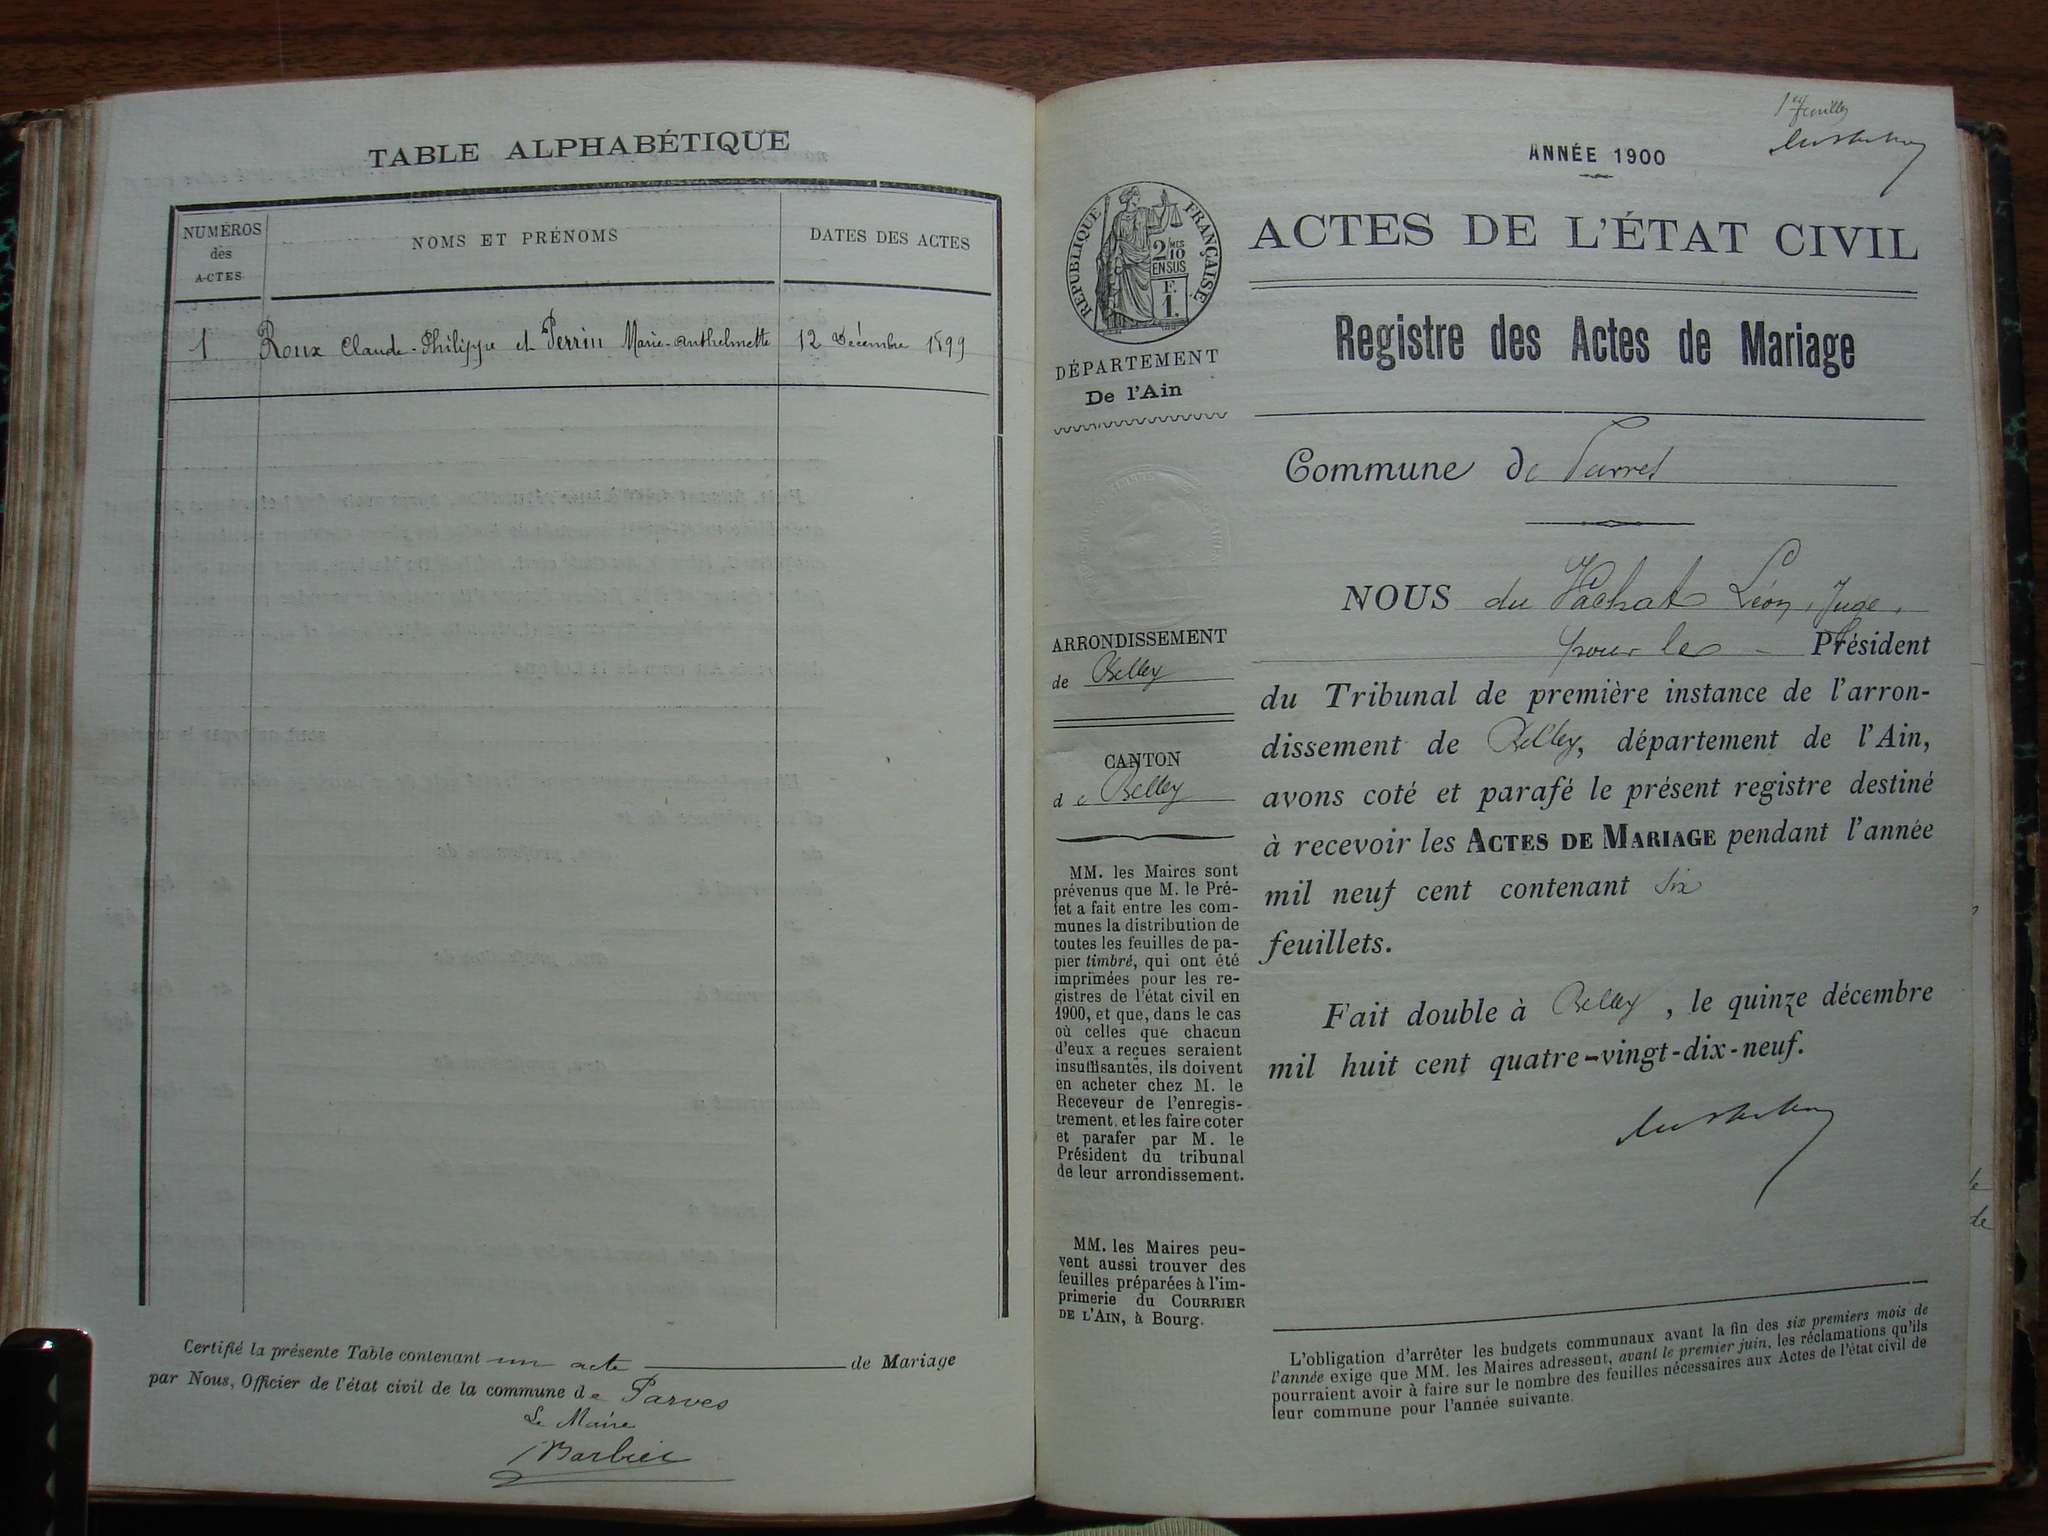 TABLE ALPHABÉTIQUE
NUMÉROS
des
ACTES
NOMS ET PRÉNOMS
DATES DES ACTES
1 Roux Claude-Philippe et Perrin Marie-Anthelmette 12 Décembre 1899
Certifié la présente Table contenant un acte de Mariage
par Nous, Officier de l'état civil de la commune de Parves
Le Maire
Barbier
1er feuillet
ANNÉE 1900
RÉPUBLIQUE FRANÇAISE
2/10
EN SUS
F.
1.
ACTES DE L'ÉTAT CIVIL
Registre des Actes de Mariage
DÉPARTEMENT
De l'Ain
Commune de Parves
ARRONDISSEMENT
de Belley
CANTON
de Belley
MM. les Maires sont
prévenus que M. le Pré-
fet a fait entre les com-
munes la distribution de
toutes les feuilles de pa-
pier timbré, qui ont été
imprimées pour les re-
gistres de l'état civil en
1900, et que, dans le cas
où celles que chacun
d'eux a reçues seraient
insuffisantes, ils doivent
en acheter chez M. le
Receveur de l'enregis-
trement, et les faire coter
et parafer par M. le
Président du tribunal
de leur arrondissement.
MM. les Maires peu-
vent aussi trouver des
feuilles préparées à l'im-
primerie du COURRIER
DE L'AIN, à Bourg.
NOUS du Vachat Léon, Juge,
pour le Président
du Tribunal de première instance de l'arron-
dissement de Belley, département de l'Ain,
avons coté et parafé le présent registre destiné
à recevoir les ACTES DE MARIAGE pendant l'année
mil neuf cent contenant six
feuillets.
Fait double à Belley, le quinze décembre
mil huit cent quatre-vingt-dix-neuf.
L'obligation d'arrêter les budgets communaux avant la fin des six premiers mois de
l'année exige que MM. les Maires adressent, avant le premier juin, les réclamations qu'ils
pourraient avoir à faire sur le nombre des feuilles nécessaires aux Actes de l'état civil de
leur commune pour l'année suivante.